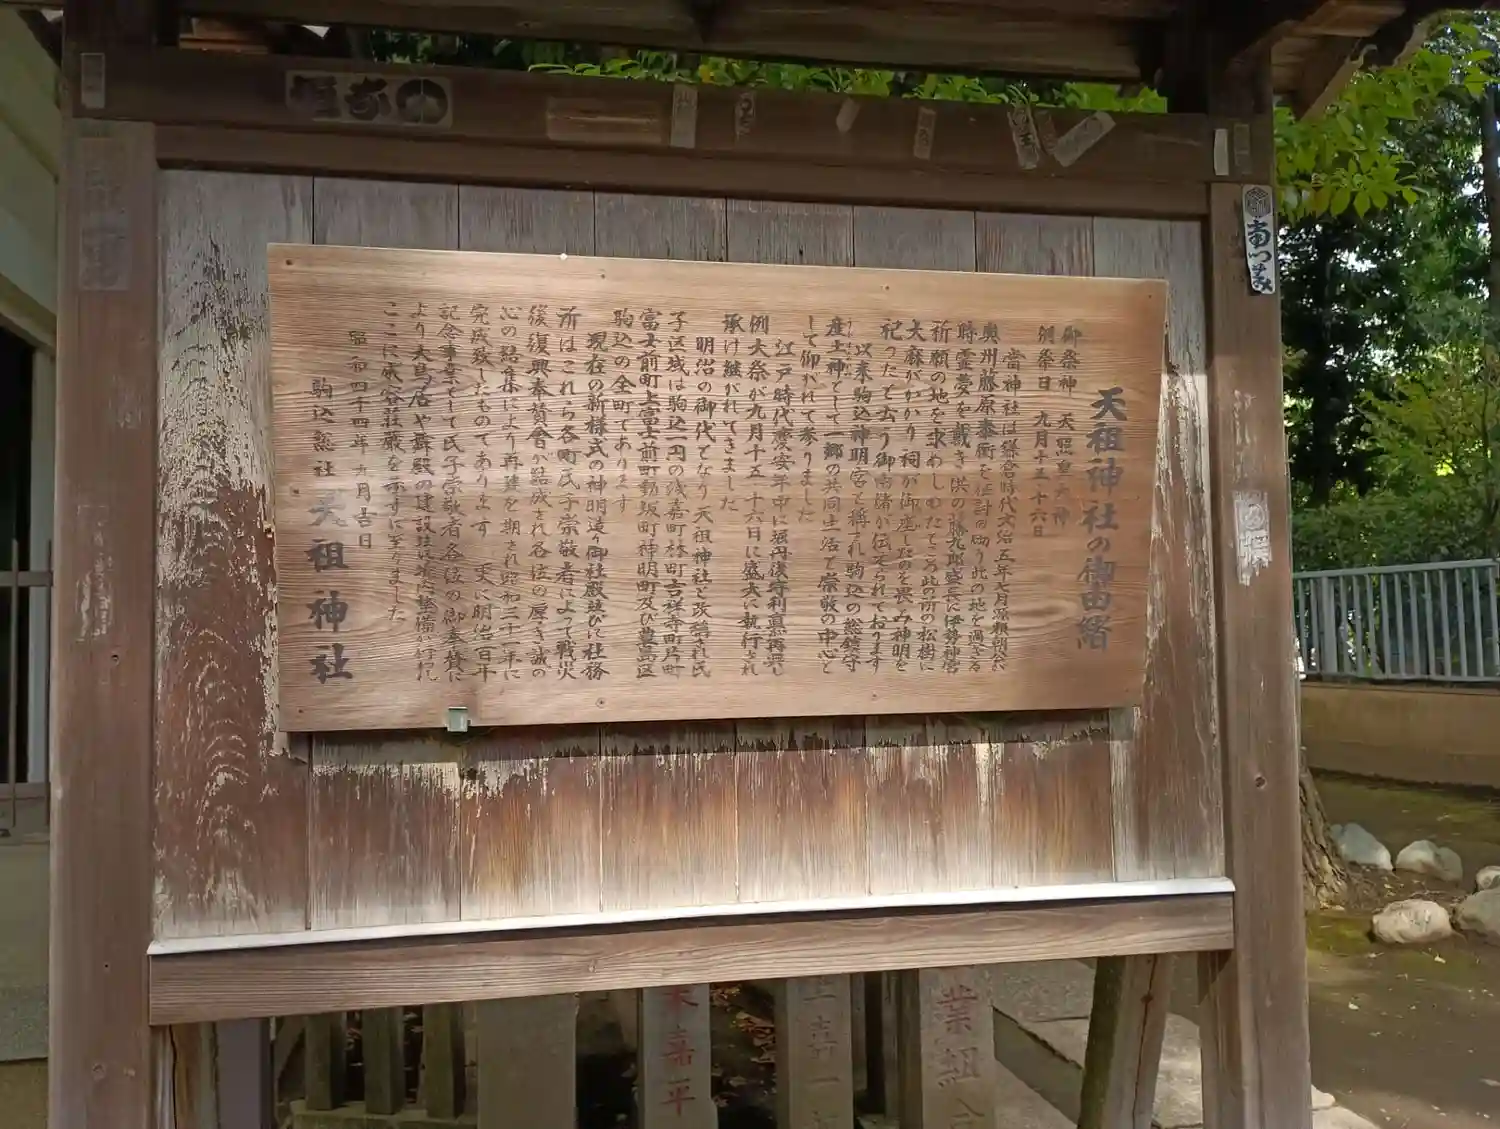 天祖神社の御由緒
御祭神 天照皇大神
例祭日 九月十五 十六日
當神社は鎌倉時代文治五年七月源頼朝公が
奥州藤原泰衡を征討の畤り此の地を過ぎる
時霊夢を戴き供の藤九郎盛長に伊勢神宮
祈願の地を求めしめたところ此の所の松樹に
大麻がかかり祠が御座したのを畏み神明を
祀ったと云う御由緒が伝えられております
以来駒込神明宮と称され駒込の総鎮守
産土神として一郷の共同生活で崇敬の中心と
して仰がれて参りました
江戸時代慶安年中に堀丹後守利直再興し
例大祭が九月十五 十六日に盛大に執行され
承け継がれてきました
明治の御代となり天祖神社と改稱され氏
子区域は駒込一円の浅嘉町林町吉祥寺町片町
富士前町上富士前町動坂町神明町及び豊島区
駒込の全町であります
現在の新様式の神明造り御社殿並びに社務
所はこれら各町氏子崇敬者によって戦災
後復興奉賛会が結成され各位の厚き誠の
心の結集により再建を期され昭和三十一年に
完成致したものであります 更に明治百年
記念事業として氏子崇敬者各位の御奉賛に
より大鳥居や舞殿の建設社域整備が行われ
ここに威容荘厳を示すに至りました
昭和四十四年九月吉日
駒込総社 天祖神社
南つくみ
米嘉平
上嘉一
業組合